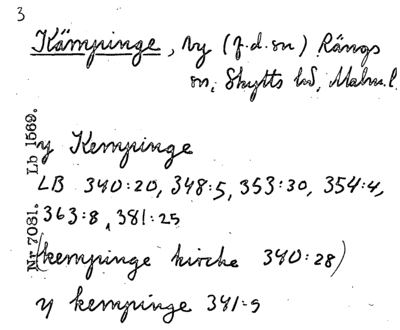 3
Kämpinge, by (f.d. sn) Rängs
sn, Skytts hd, Malm. l.
y Kempinge
LB 340:20, 348:5, 353:30, 354:4,
363:8, 381:25
(kempinge kirche 340:28)
y kempinge 341:9
Nr 7081. Lb 1569.